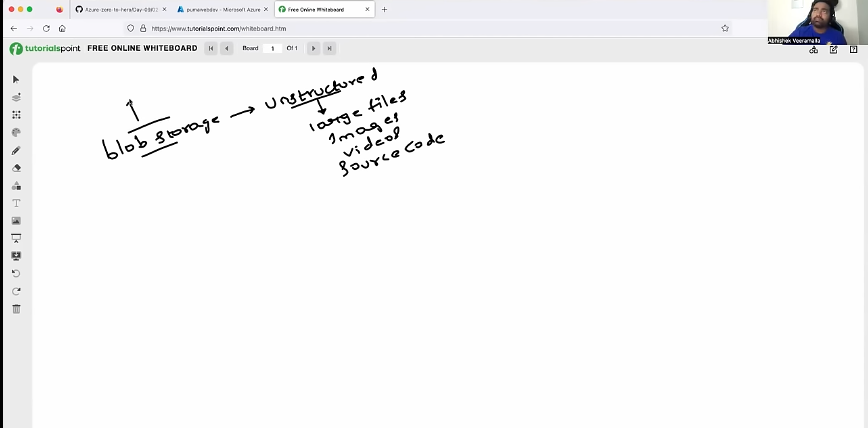 Azure-zero-to-hero/Day-09/0
pumawebdav - Microsoft Azure
Free Online Whiteboard
https://www.tutorialspoint.com/whiteboard.htm
tutorialspoint FREE ONLINE WHITEBOARD Board 1 Of 1
Abhishek Veeramalla
blob storage → unstructured
large files
images
videos
source code